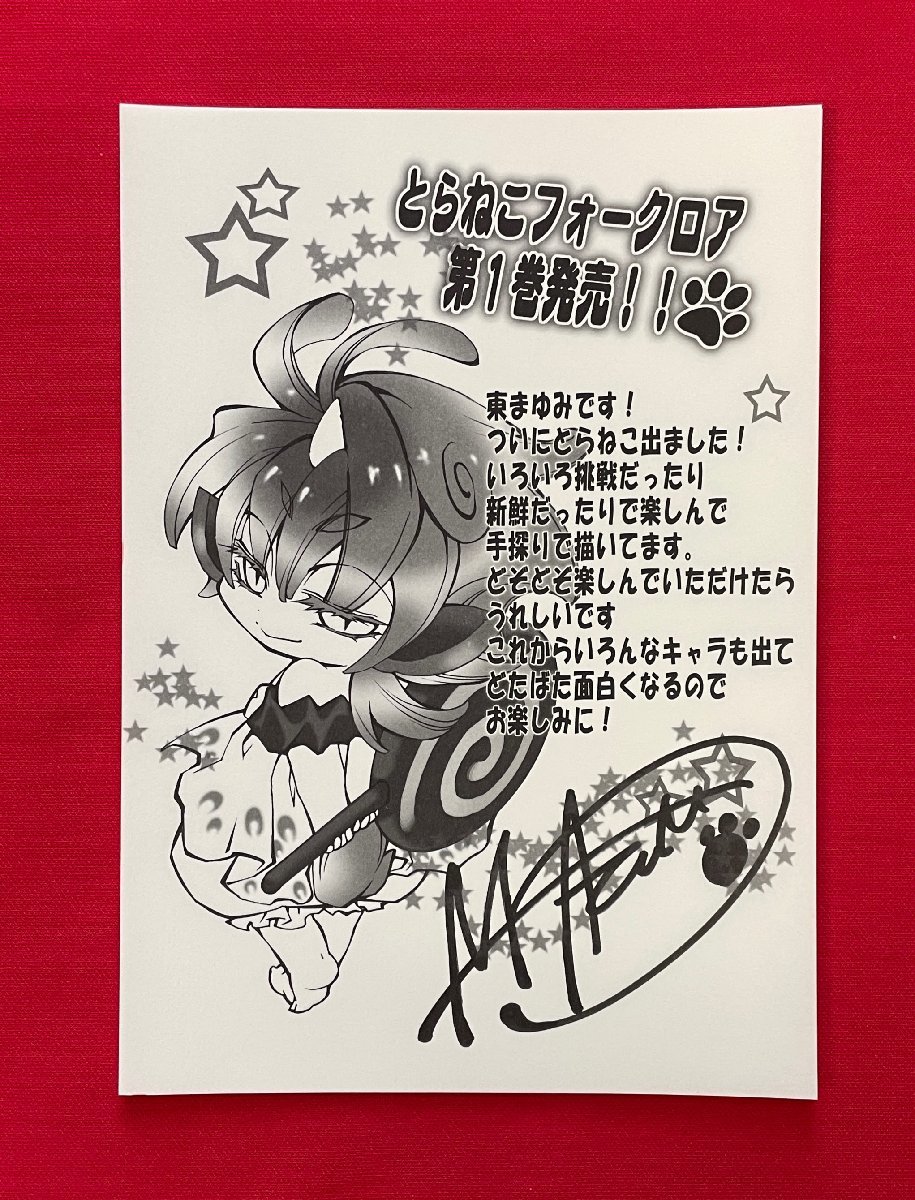 とらねこフォークロア
第1巻発売!!
東まゆみです!
ついにとらねこ出ました!
いろいろ挑戦だったり
新鮮だったりで楽しんで
手探りで描いてます。
どぞどぞ楽しんでいただけたら
うれしいです
これからいろんなキャラも出て
どたばた面白くなるので
お楽しみに!